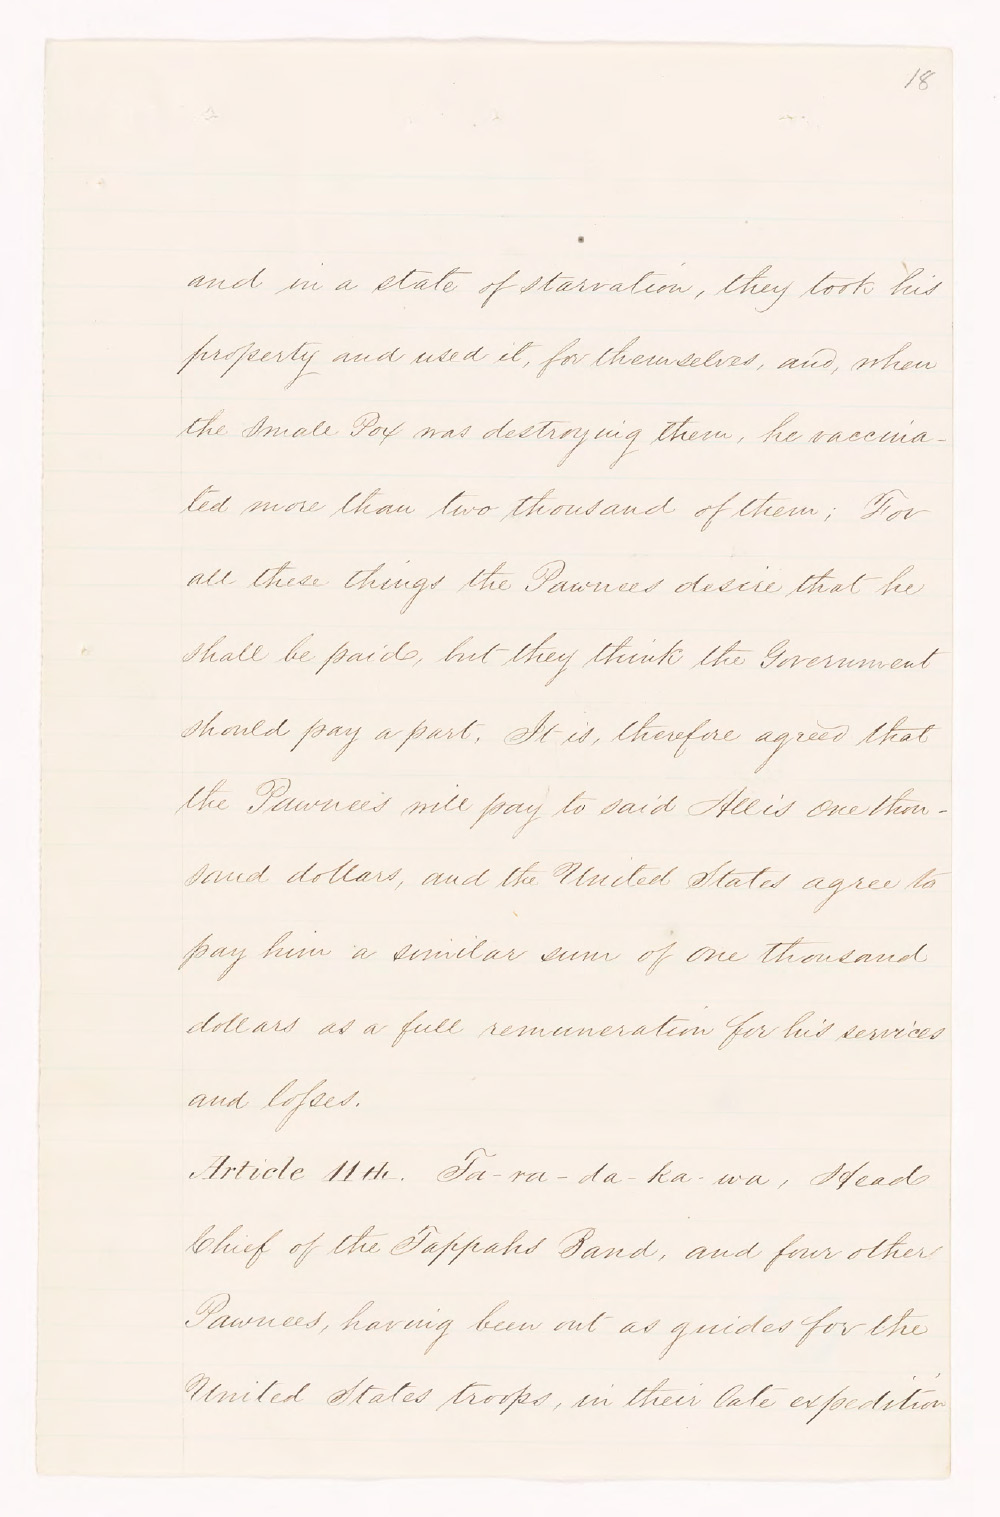 18
and in a state of starvation, they took his
property and used it, for themselves, and, when
the Small Pox was destroying them, he vaccina-
ted more than two thousand of them; For
all these things the Pawnees desire that he
shall be paid, but they think the Government
should pay a part. It is, therefore agreed that
the Pawnees will pay to said Allis one thou-
sand dollars, and the United States agree to
pay him a similar sum of one thousand
dollars as a full remuneration for his services
and losses.
Article 11th. Ta-ra-da-ka-wa, Head
Chief of the Tappahs Band, and four other
Pawnees, having been out as guides for the
United States troops, in their late expedition